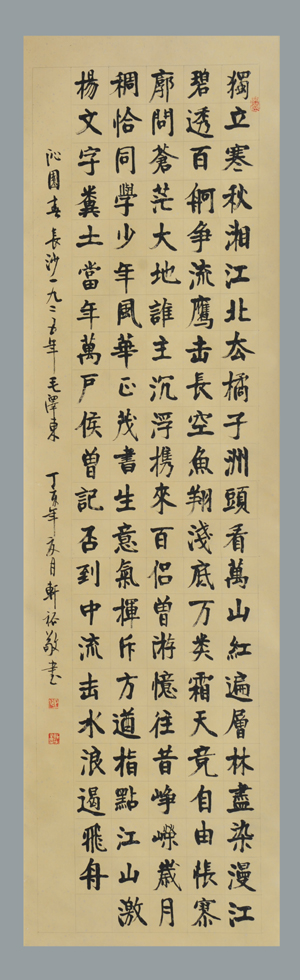 獨立寒秋湘江北去橘子洲頭看萬山紅遍層林盡染漫江
碧透百舸争流鷹击長空魚翔淺底万类霜天竞自由悵寥
廓問蒼茫大地誰主沉浮携來百侣曾游憶往昔崢嶸歲月
稠恰同學少年風華正茂書生意氣揮斥方遒指點江山激
楊文字糞土當年萬戶侯曾記否到中流击水浪遏飛舟
沁園春 長沙一九二五年毛澤東 丁亥年夏月軒裕敬書